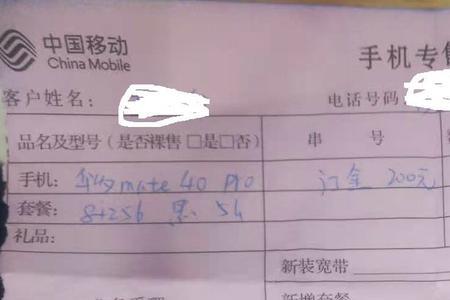 中国移动
China Mobile
手机专售
客户姓名:
电话号码:
品名及型号(是否裸售 □是□否)
串 号
手机: 华为mate 40 pro
订金 200元
套餐: 8+256 黑、5G
礼品:
新装宽带